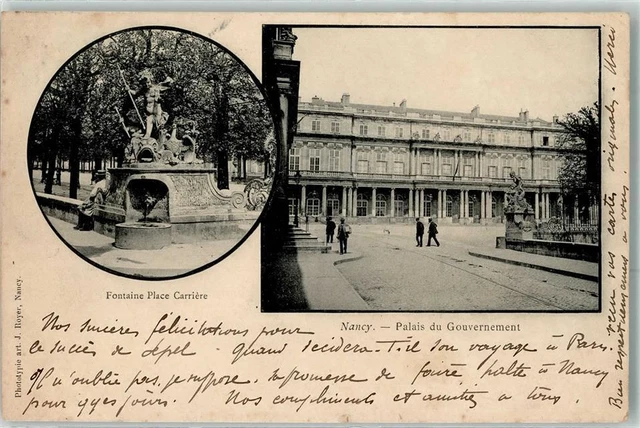 Fontaine Place Carrière
Nancy. — Palais du Gouvernement
Phototypie art. J. Royer, Nancy.
Nos sincères félicitations pour
le succès de Abel - Quand decidera-t-il son voyage à Paris.
Il n'oublie pas, je suppose, sa promesse de faire halte à Nancy
pour qques jours. Nos compliments et amitiés à tous.
Merci
pour vos cartes originales.
Bien respectueusement à vous.